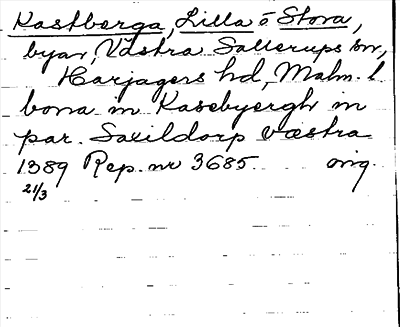 Kastberga, Lilla o Stora,
byar, Västra Sallerups sn,
Harjagers hd, Malm. l.
bona in Kasebyergh in
par. Saxildorp væstra
1389 Rep. nr 3685 orig.
21/3